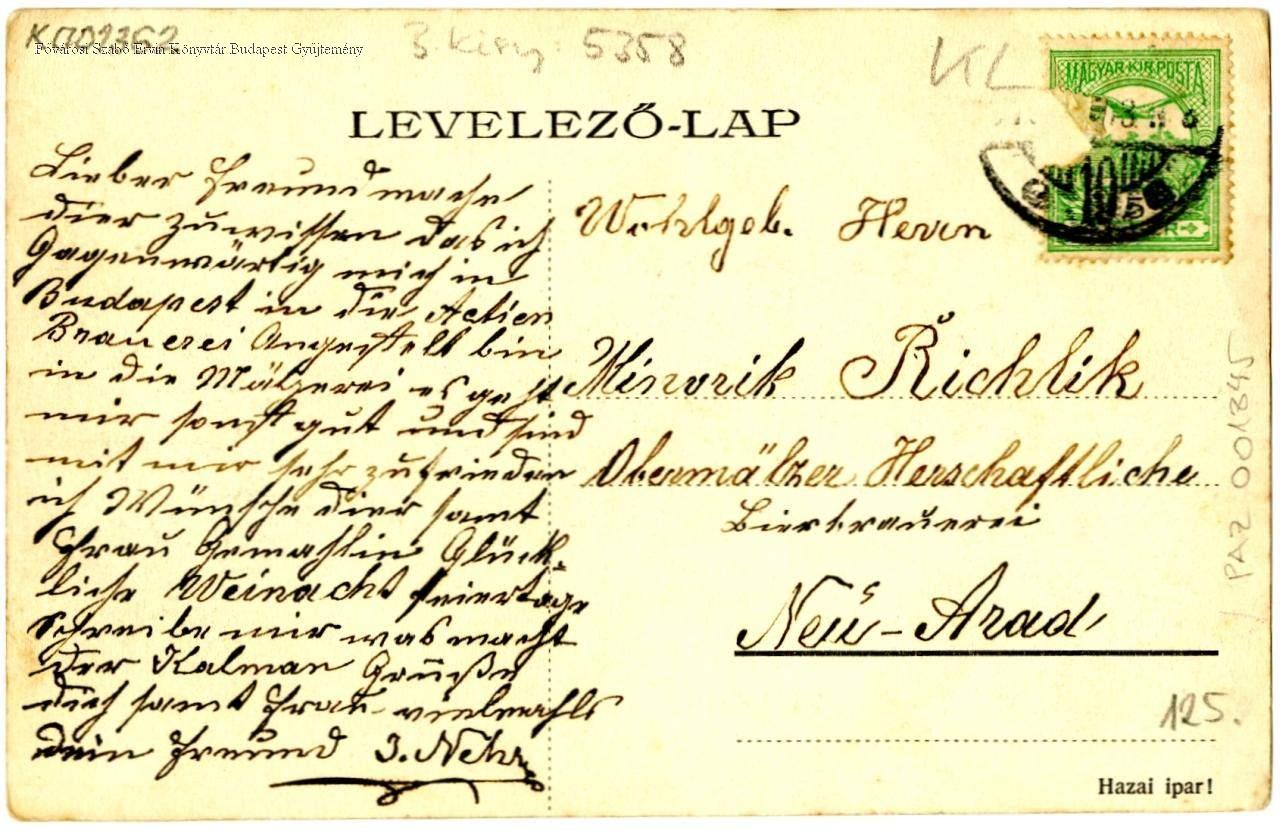 K 702352
Fővárosi Szabó Ervin Könyvtár Budapest Gyűjtemény
5358
KL
MAGYAR·KIR·POSTA
LEVELEZŐ-LAP
Lieber Freund mache
dier zuwissen das ich
Gagenwärtig mich in
Budapest in die Actien
Brauerei Angestelt bin
in die Mälzerei es geht
mir sonst gut und sind
mit mir sehr zufrieden
ich Wünsche dier samt
Frau Gemahlin Glück-
liche Weinacht feiertage
Schreibe mir was macht
der Kalman Grüße
dich samt Frau vielmahls
dein Freund J. Nehr
Wohlgeb. Herrn
Minorik Richlik
Obermälzer Herschaftliche
Bierbrauerei
Neü-Arad
PAZ 001845
125.
Hazai ipar!